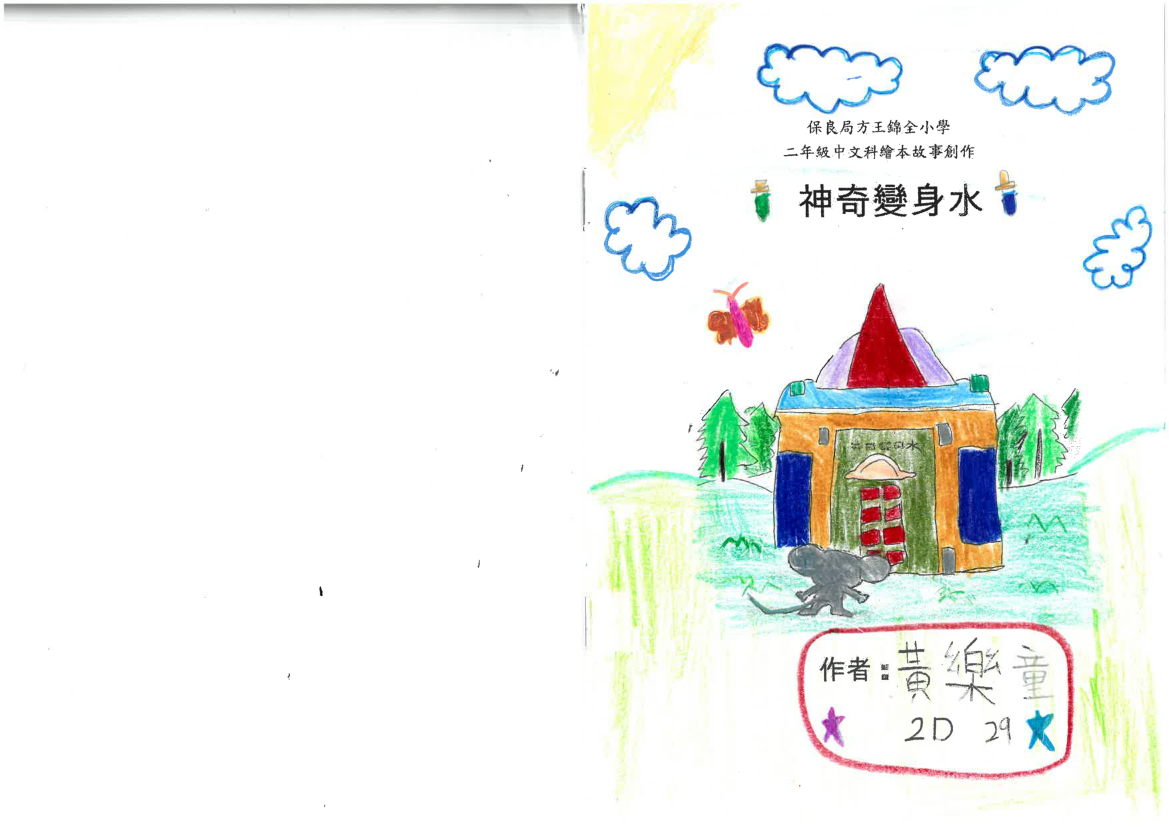 保良局方王錦全小學
二年級中文科繪本故事創作
神奇變身水
作者：黃樂童
2D 29